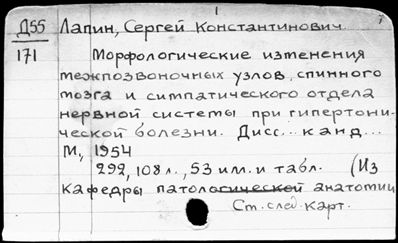 1
Д55 Лапин, Сергей Константинович.
171 Морфологические изменения
межпозвоночных узлов, спинного
мозга и симпатического отдела
нервной системы при гипертони-
ческой болезни. Дисс... канд...
М., 1954
292, 108 л., 53 илл. и табл. (Из
кафедры патологической анатомии
См. след. карт.